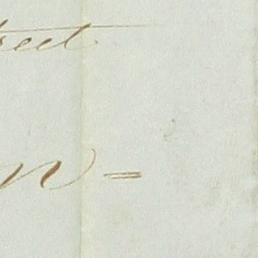 reet
n =